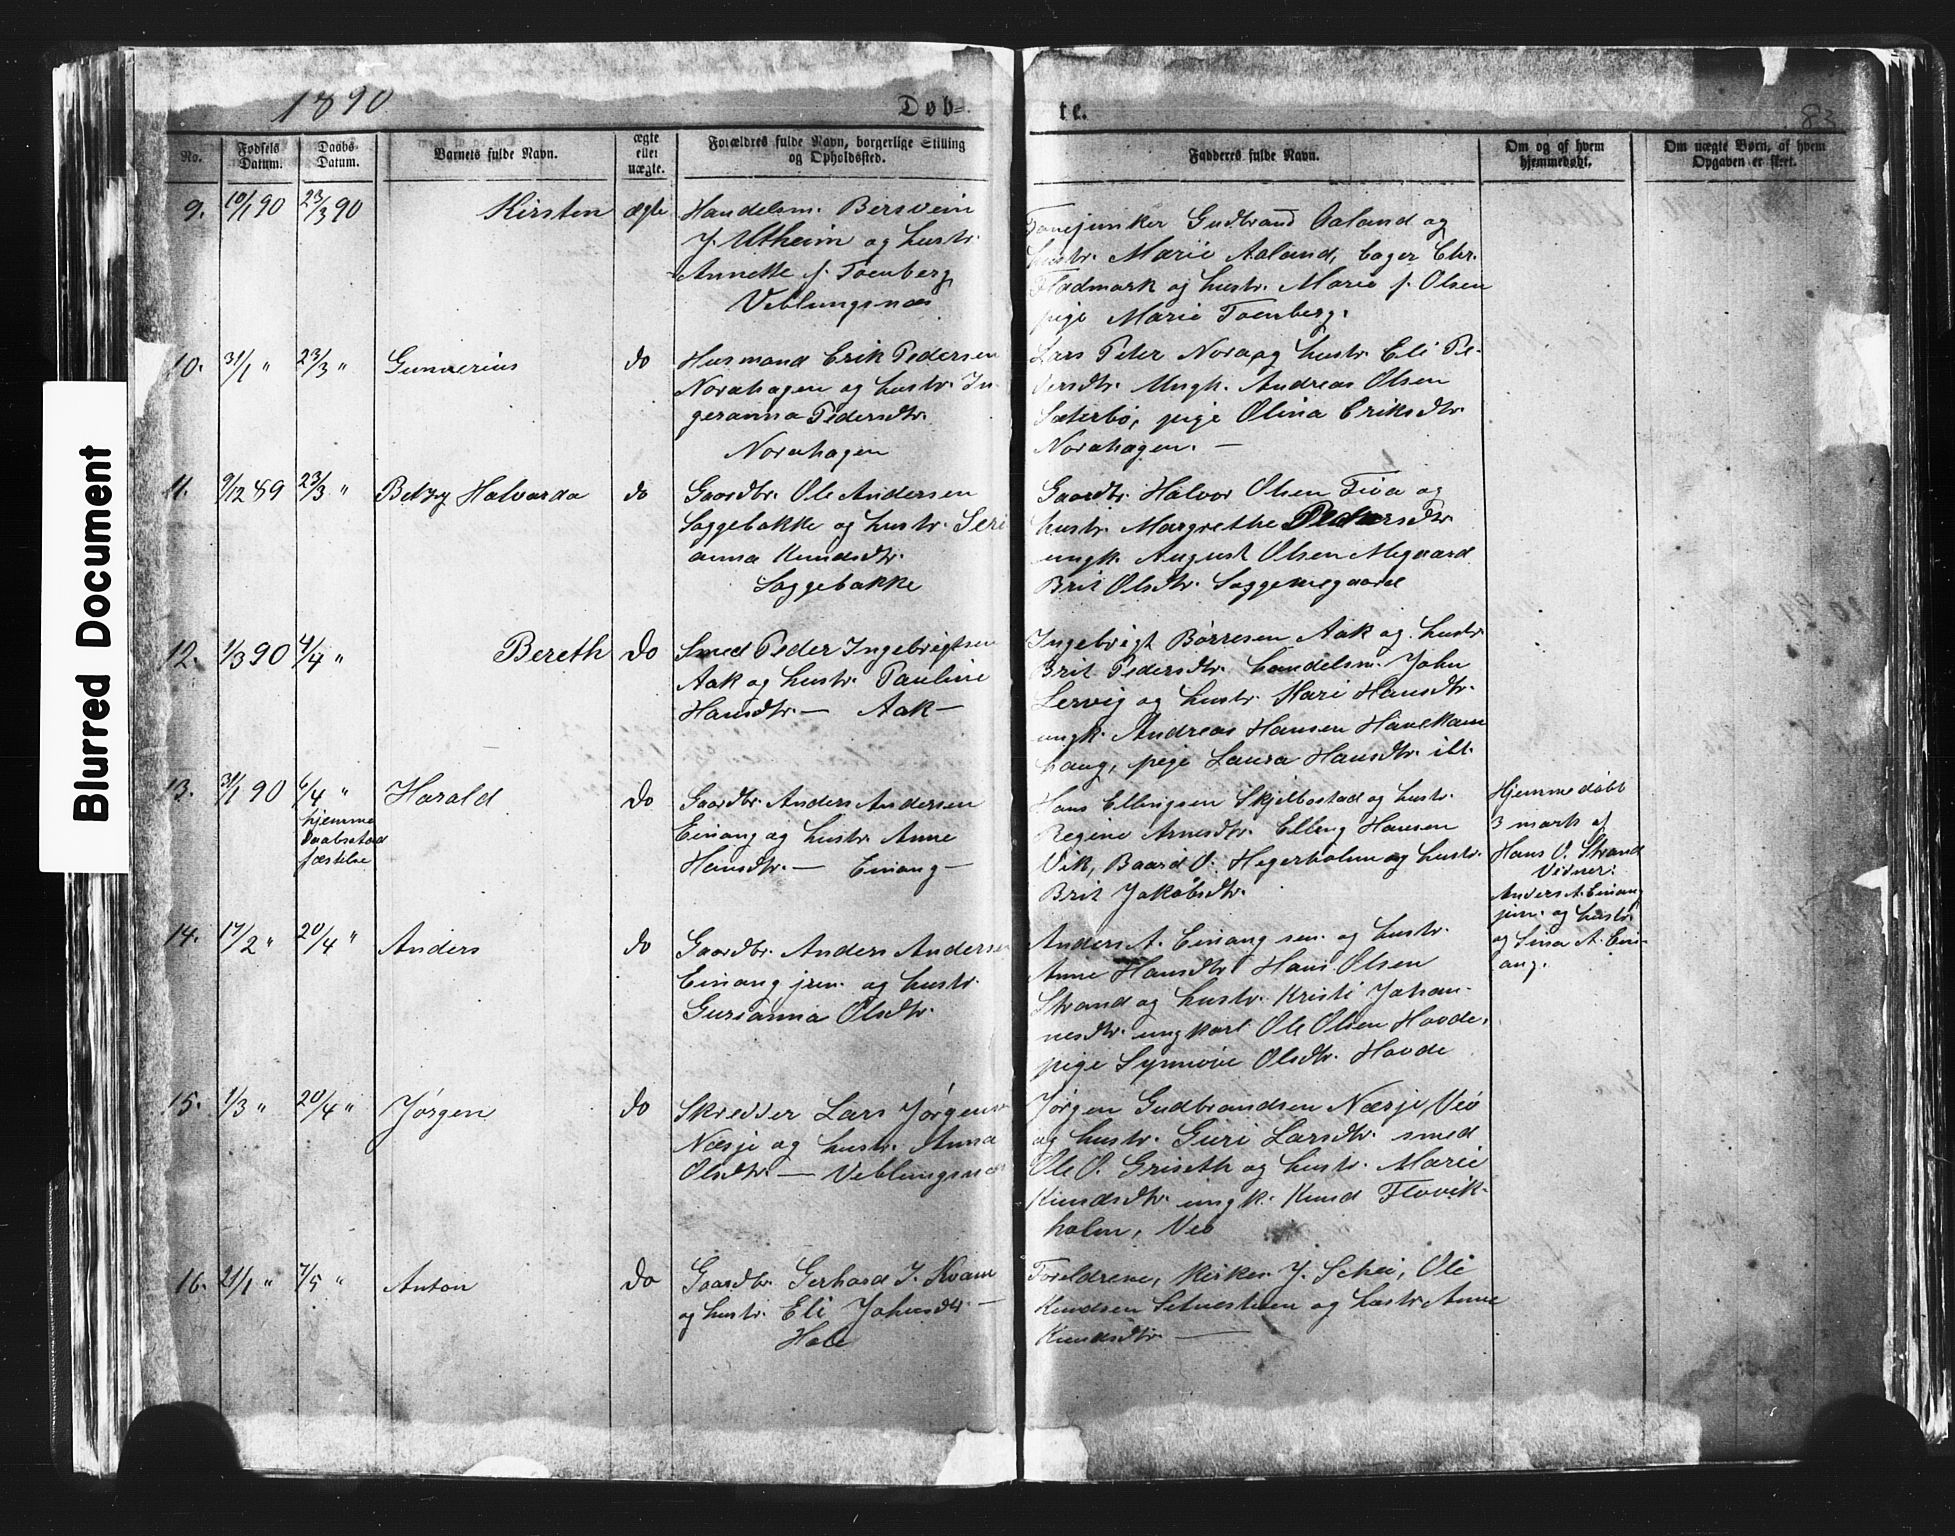 Blurred Document
1890
Døb=
te.
83
No.
Fødsels Datum.
Daabs Datum.
Barnets fulde Navn.
ægte eller uægte.
Forældres fulde Navn, borgerlige Stilling
og Opholdssted.
Fadderes fulde Navn.
Om og af hvem
hjemmedøbt.
Om uægte Børn, af hvem
Opgaven er skeet.
9. 10/1 90 23/3 90 Kirsten ægte
Handelsm. Bersvein
J. Utheim og hustr.
Annette f. Toenberg
Veblungsnæs
Fanejunker Gudbrand Aaland og
hustr. Marie Aaland, bager Chr.
Fladmark og hustr. Marie f. Olsen
pige Marie Toenberg.
10. 31/1 " 23/3 " Gunnerius do
Husmand Erik Pedersen
Norahagen og hustr. In
geranna Pedersdtr.
Norahagen
Lars Peter Nora og hustr. Eli Pe-
dersdtr. Ungk. Andreas Olsen
Sæterbø, pige Olina Eriksdtr.
Norahagen. —
11. 9/12 89 23/3 " Betzy Halvarda do
Gaardbr. Ole Andersen
Soggebakke og hustr. Seri
anna Knudsdtr.
Soggebakke
Gaardbr. Halvor Olsen Tiva og
hustr. Margrethe Pedersdtr.
ungk. August Olsen Megaard
Brit Olsdtr. Soggemegaard
12. 1/3 90 4/4 " Bereth do
Smed Peder Ingebrigtsen
Aak og hustr. Pauline
Hansdtr. — Aak —
Ingebrigt Børresen Aak og hustr.
Brit Pedersdtr. handelsm. John
Lervig og hustr. Kari Hansdtr.
ungk. Andreas Hansen Havekam
haug, pige Laura Hansdtr. ibt.
13. 31/1 90 6/4 " Harald do
hjemme
daabsstad
fæstelse
Gaardbr. Anders Andersen
Einang og hustr. Anne
Hansdtr. — Einang —
Hans Ellingsen Skjelbostad og hustr.
Regine Arnesdtr. Elling Hansen
Vik, Baard O. Hegerholm og hustr.
Brit Jakobsdtr.
Hjemmedøbt
3 marts af
Hans O. Strand
Vidner:
Anders A. Einang
jun. og hustr.
og Sina A. Ein-
ang.
14. 17/2 " 20/4 " Anders do
Gaardbr. Anders Andersen
Einang jun. og hustr.
Gurianna Olsdtr.
Anders A. Einang sen. og hustr.
Anne Hansdtr. Hans Olsen
Strand og hustr. Kristi Johan-
nesdtr. ungkarl Ole Olsen Hovde,
pige Synnøve Olsdtr. Hovde
15. 1/3 " 20/4 " Jørgen do
Skredder Lars Jørgens
Næsje og hustr. Anna
Olsdtr. — Veblungsnæs
Jørgen Gudbrandsen Næsje, Veø
og hustr. Guri Larsdtr. smed
Ole O. Griseth og hustr. Marie
Knudsdtr. ungk. Knud Flovik-
holm, Veø
16. 21/1 " 7/5 " Anton do
Gaardbr. Gerhard J. Kvam
og hustr. Eli Johnsdtr. —
Hole
Foreldrene, Kirkes. J. Schei, Ole
Knudsen Setnesteen og hustr. Anne
Knudsdtr. —